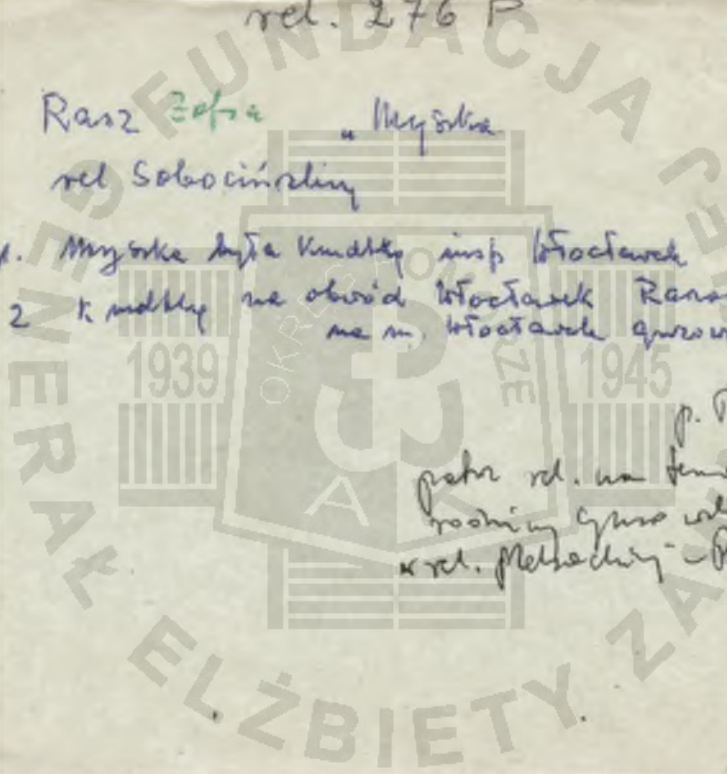 rel. 276 P
Rasz Zofia „Myszka
rel Sobocińskiej
p. Myszka była Kmdtką insp Włocławek
2 Kmdtkę na obwód Włocławek
na m. Włocławek
p.
patrz rel. na
rodziny
w rel.
FUNDACJA
GENERAŁ ELŻBIETY ZA
OKRĘG POMORZE
1939
1945
AK